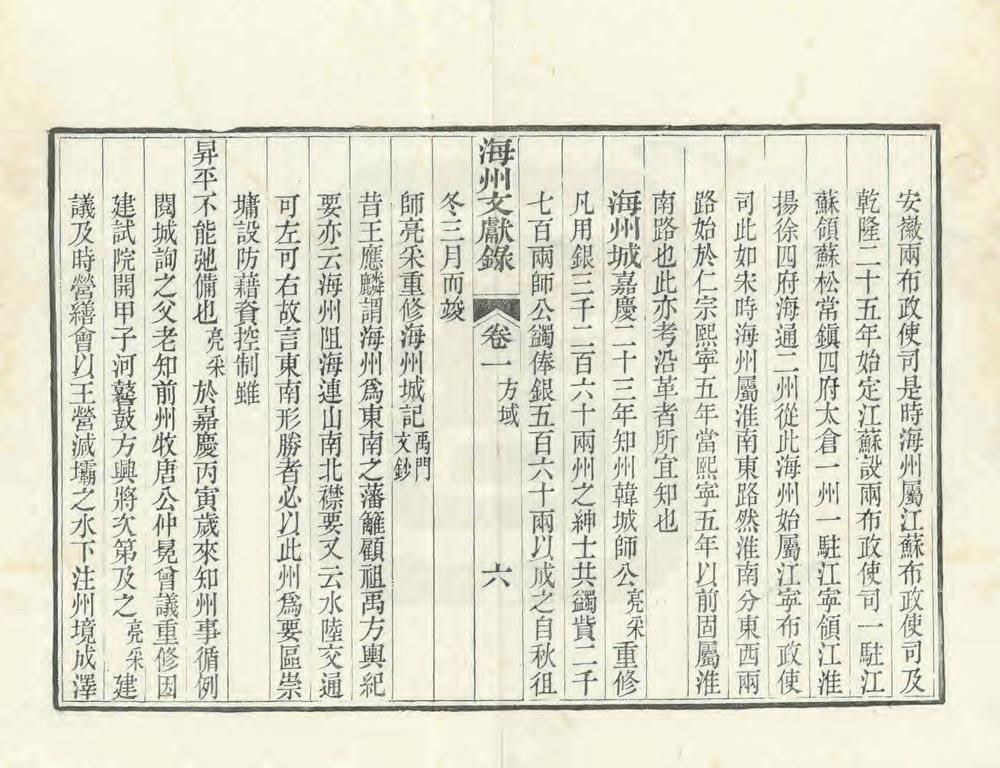 安徽兩布政使司是時海州屬江蘇布政使司及
乾隆二十五年始定江蘇設兩布政使司一駐江
蘇領蘇松常鎮四府太倉一州一駐江寧領江淮
揚徐四府海通二州從此海州始屬江寧布政使
司此如宋時海州屬淮南東路然淮南分東西兩
路始於仁宗熙寧五年當熙寧五年以前固屬淮
南路也此亦考沿革者所宜知也
海州城嘉慶二十三年知州韓城師公亮采重修
凡用銀三千二百六十兩州之紳士共蠲貲二千
七百兩師公蠲俸銀五百六十兩以成之自秋徂
海州文獻錄 卷一 方域 六
冬三月而竣
師亮采重修海州城記禹門文鈔
昔王應麟謂海州爲東南之藩籬顧祖禹方輿紀
要亦云海州阻海連山南北襟要又云水陸交通
可左可右故言東南形勝者必以此州爲要區崇
墉設防藉資控制雖
昇平不能弛備也亮采於嘉慶丙寅歲來知州事循例
閱城詢之父老知前州牧唐公仲冕曾議重修因
建試院開甲子河鼛鼓方興將次第及之亮采建
議及時營繕會以王營減壩之水下注州境成澤